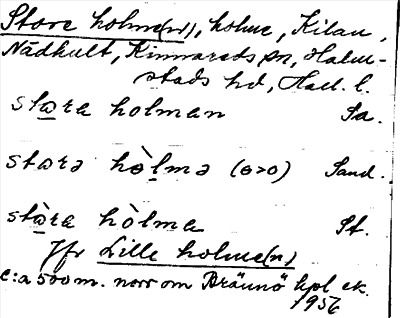 Store holme(n), holme, Kilan,
Nådhult, Kinnareds sn, Halm-
stads hd, Hall. l.
stɷra holman Sa.
stɷrə hɵ̀lmə (ɵ>o) Sand.
stɷ̀ra hòlma St.
Jfr Lille holme(n)
c:a 500 m. norr om Brännö hpl ek.
1956